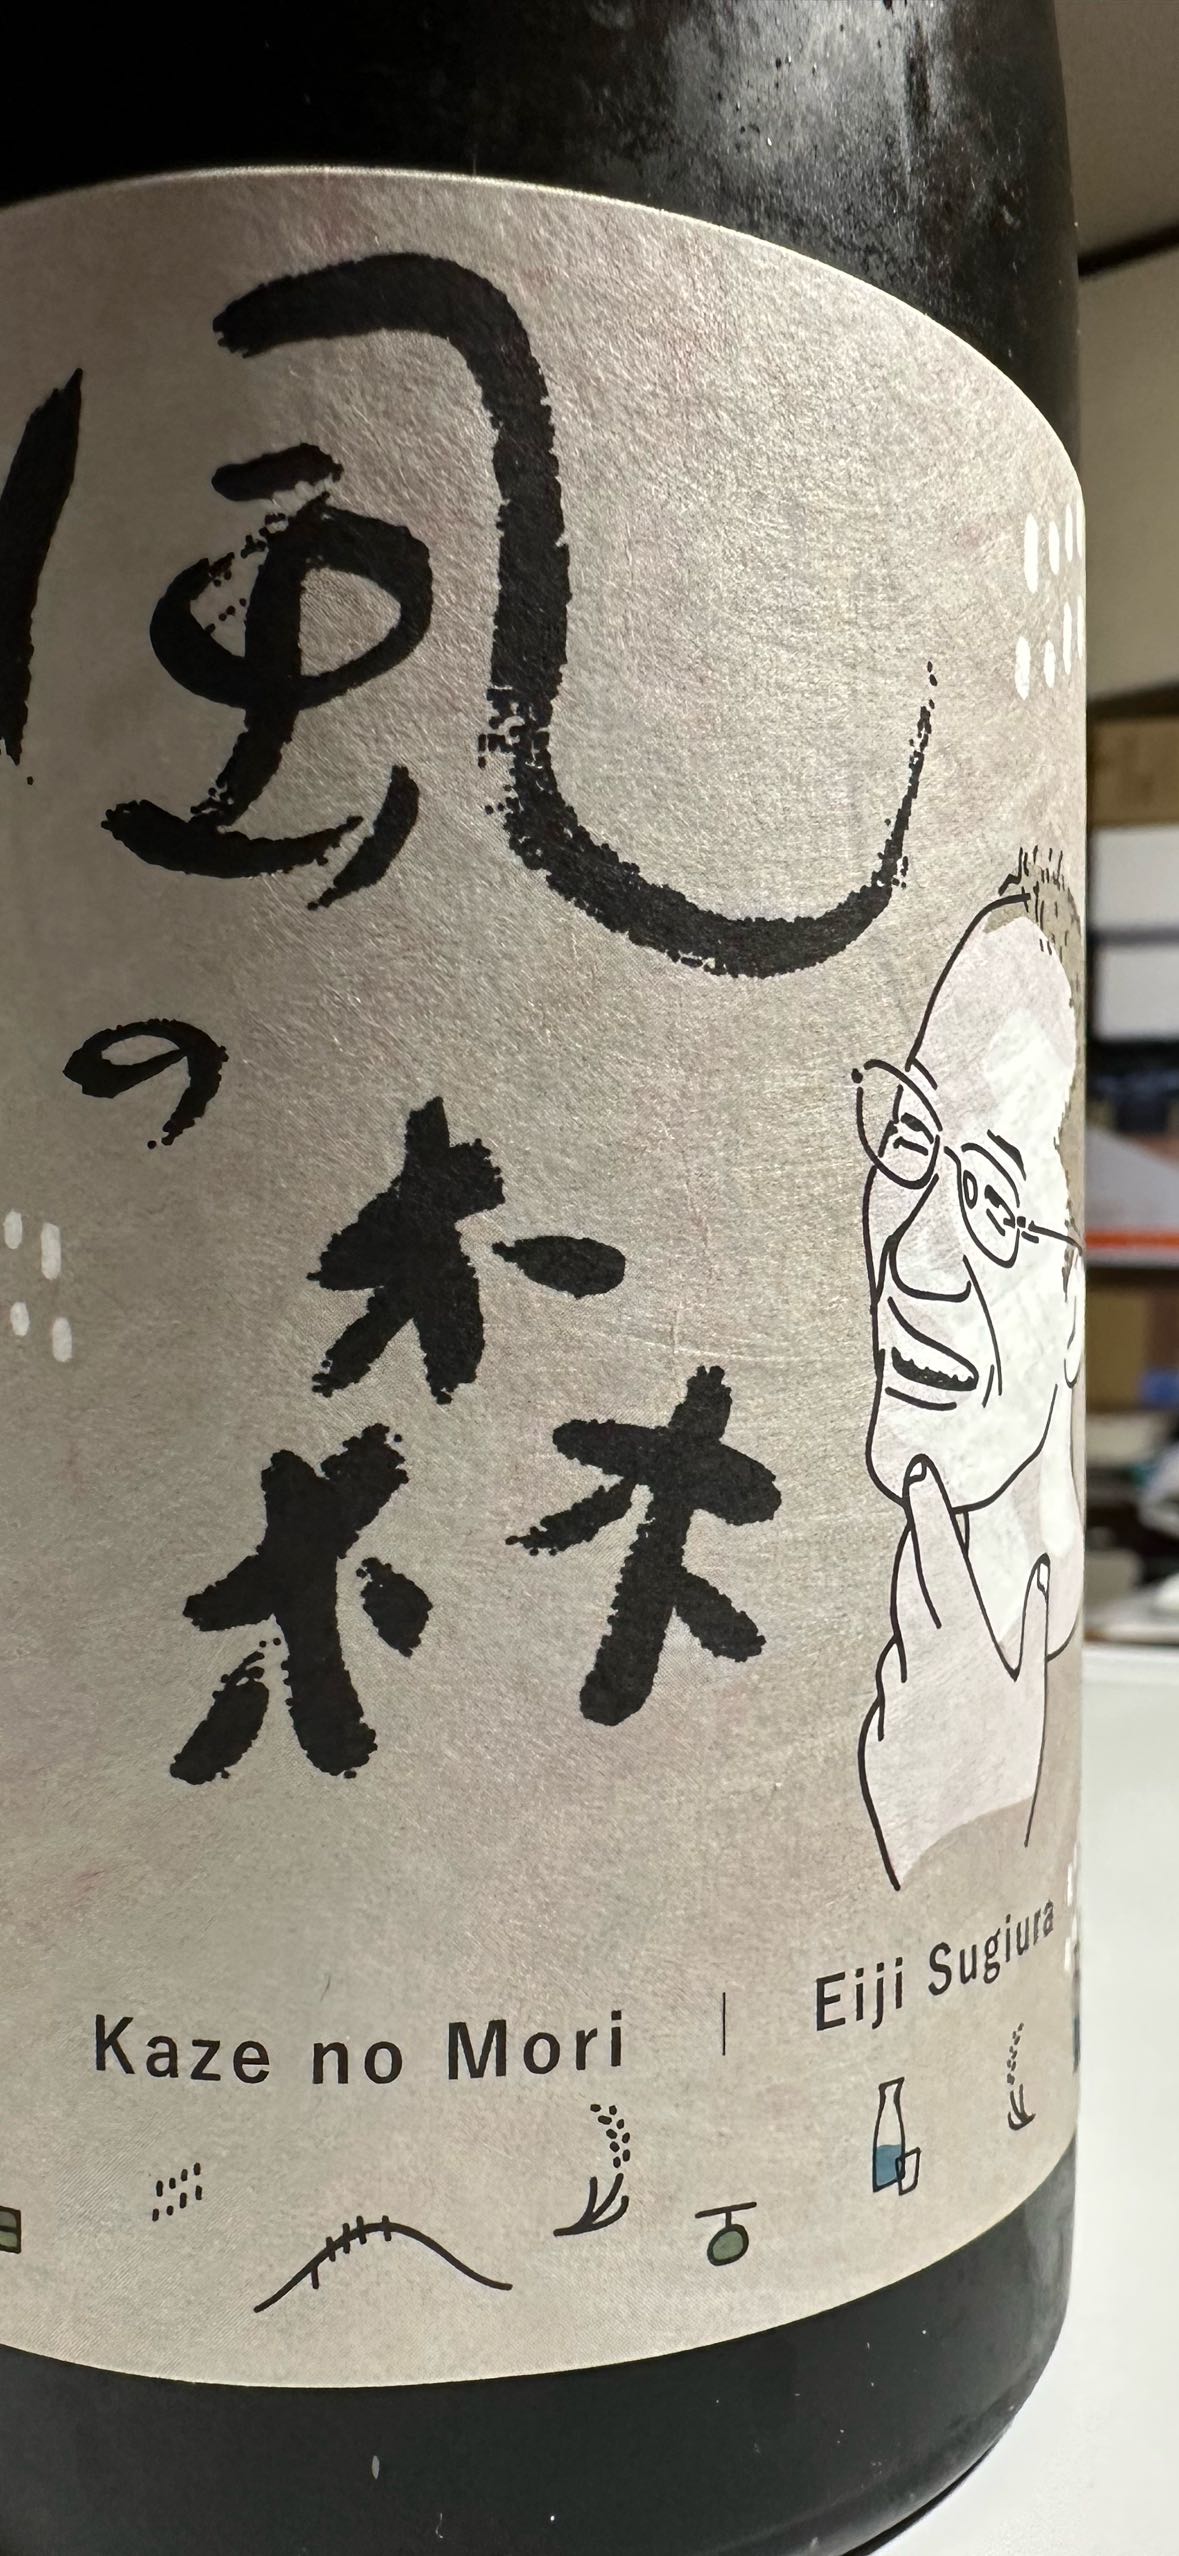 風の森
Kaze no Mori | Eiji Sugiura